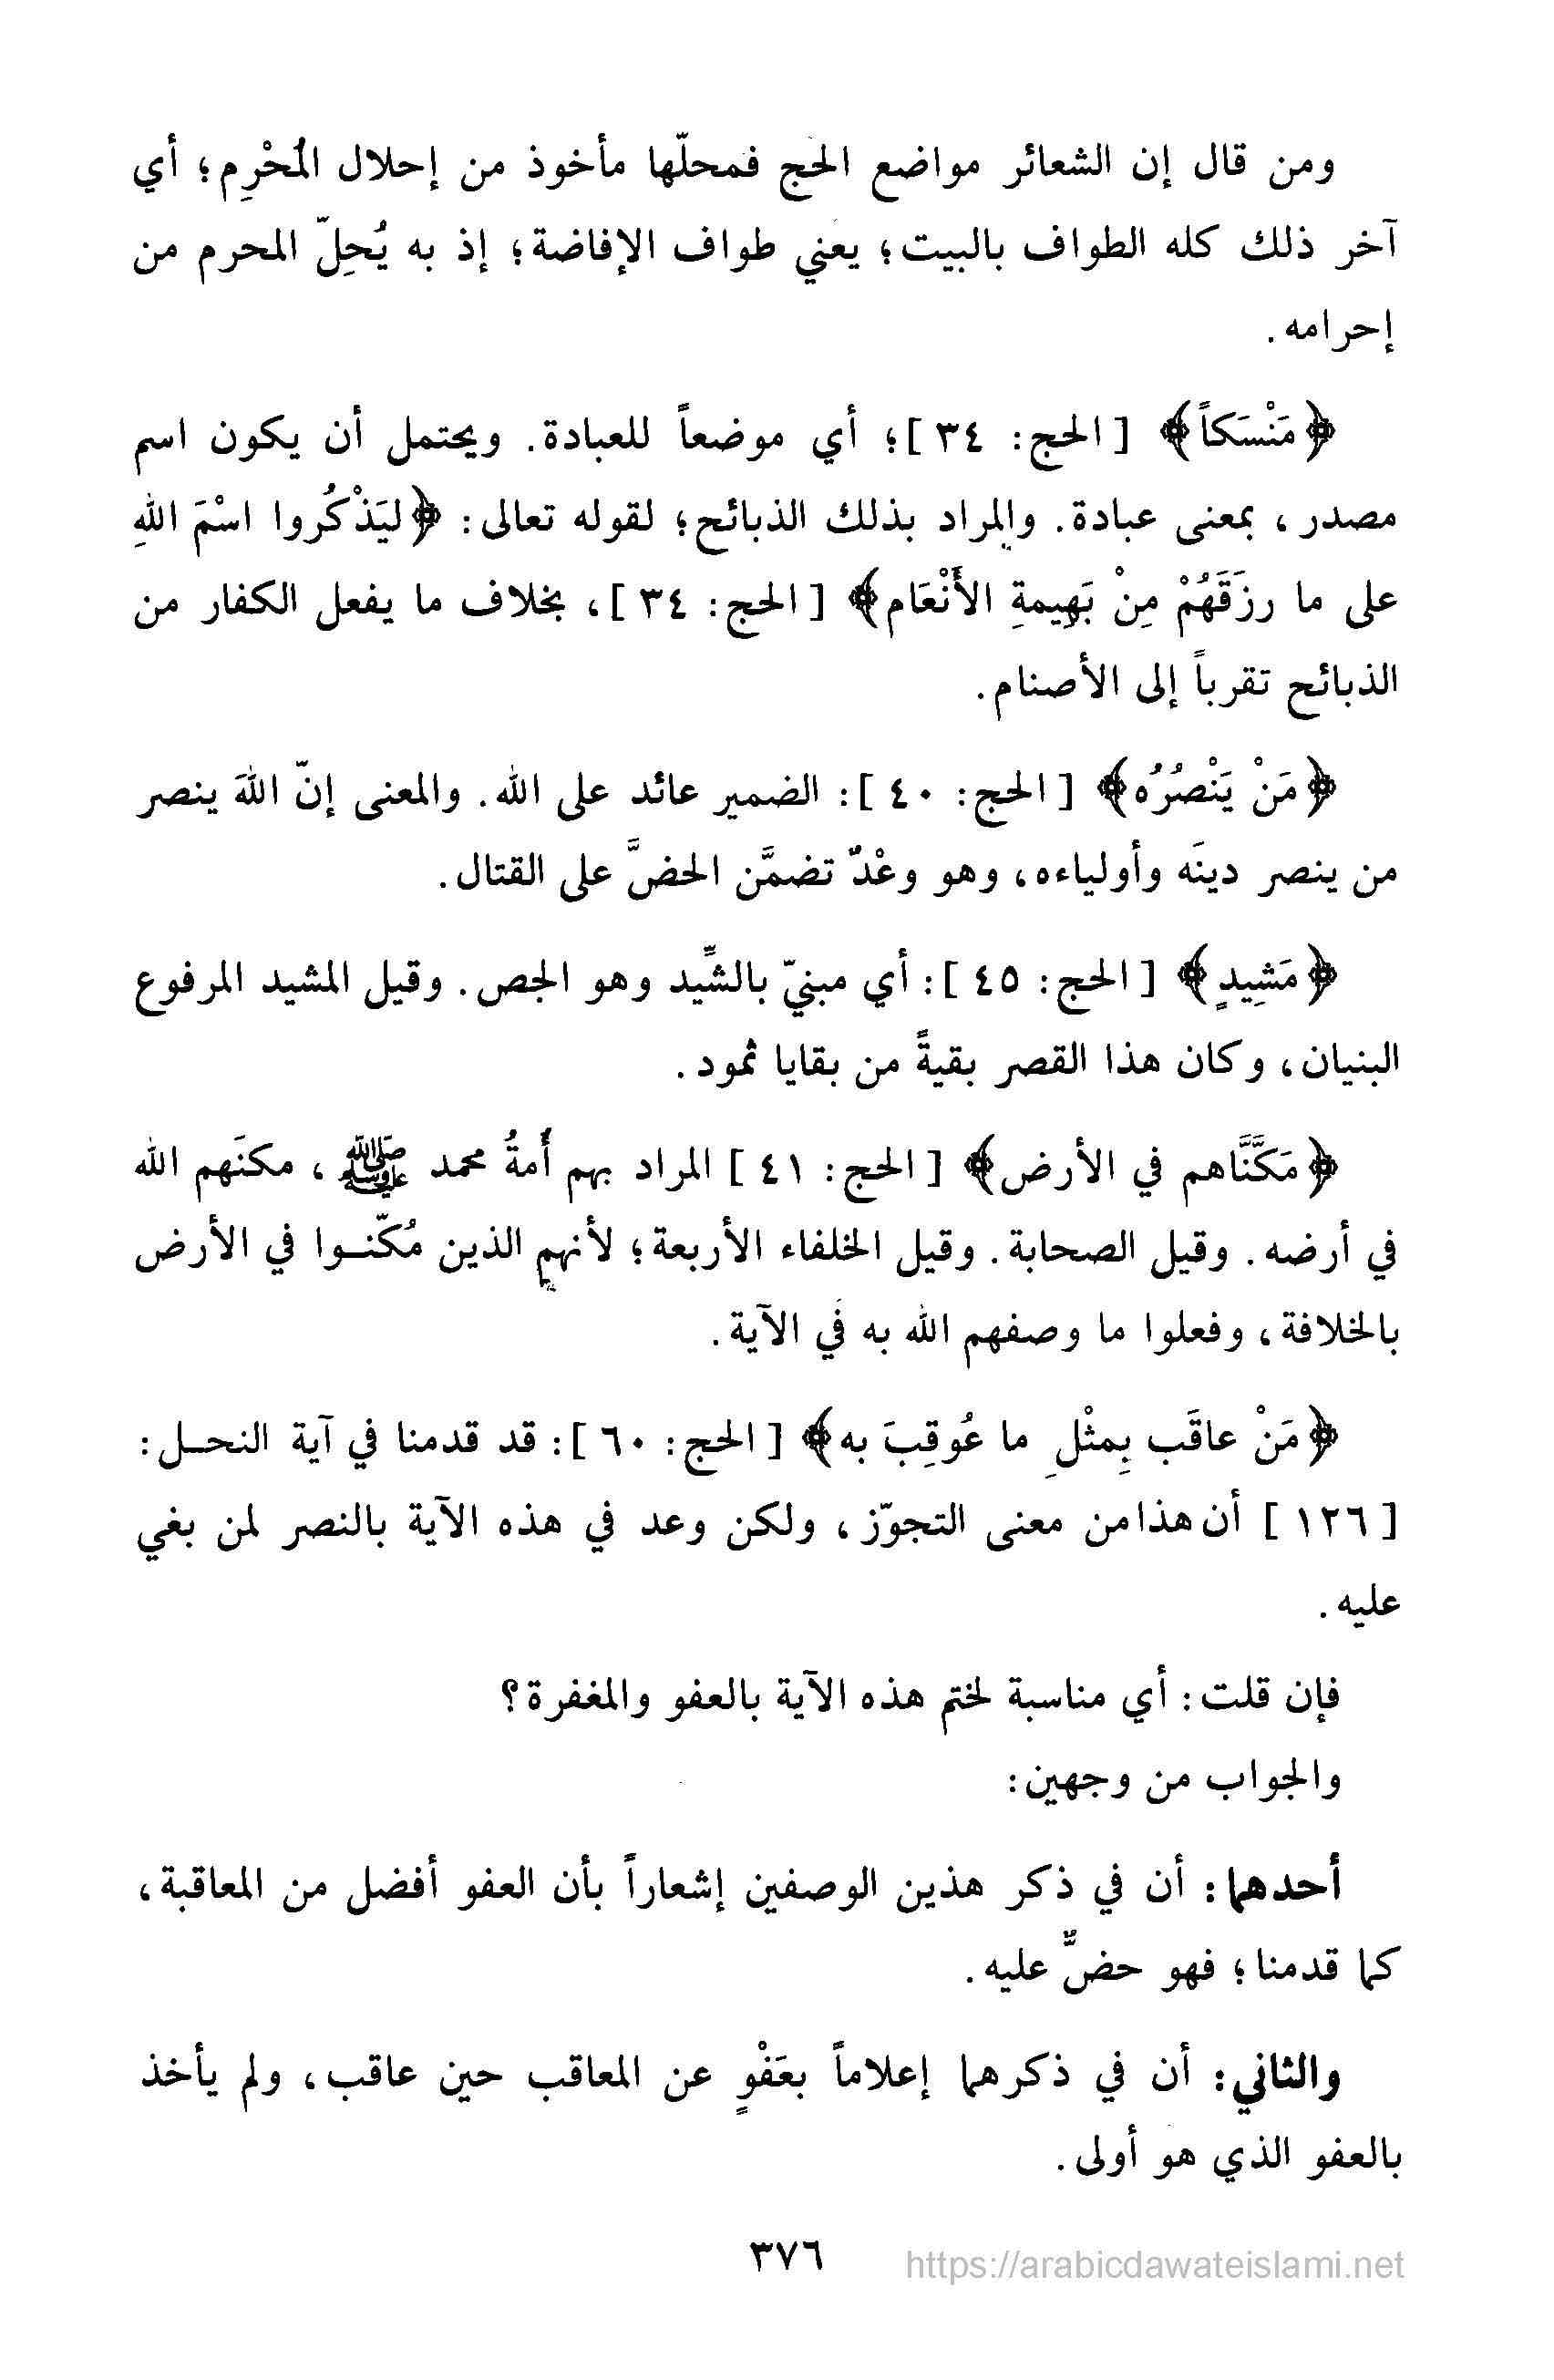 ومن قال إن الشعائر مواضع الحج فمحلّها مأخوذ من إحلال المُحْرِم؛ أي
آخر ذلك كله الطواف بالبيت؛ يعني طواف الإفاضة؛ إذ به يُحِلّ المحرم من
إحرامه.
﴿مَنْسَكاً﴾ [الحج: ٣٤]؛ أي موضعاً للعبادة. ويحتمل أن يكون اسم
مصدر، بمعنى عبادة. والمراد بذلك الذبائح؛ لقوله تعالى: ﴿ليَذْكُروا اسْمَ اللهِ
على ما رزَقَهُمْ مِنْ بَهِيمةِ الأَنْعَام﴾ [الحج: ٣٤]، بخلاف ما يفعل الكفار من
الذبائح تقرباً إلى الأصنام.
﴿مَنْ يَنْصُرُه﴾ [الحج: ٤٠]: الضمير عائد على الله. والمعنى إنّ اللهَ ينصر
من ينصر دينَه وأولياءه، وهو وعْدٌ تضمَّن الحضَّ على القتال.
﴿مَشِيدٍ﴾ [الحج: ٤٥]: أي مبنيّ بالشِّيد وهو الجص. وقيل المشيد المرفوع
البنيان، وكان هذا القصر بقيةً من بقايا ثمود.
﴿مَكَّنَّاهم في الأرض﴾ [الحج: ٤١] المراد بهم أُمةُ محمد ﷺ، مكنَهم الله
في أرضه. وقيل الصحابة. وقيل الخلفاء الأربعة؛ لأنهم الذين مُكّنــوا في الأرض
بالخلافة، وفعلوا ما وصفهم الله به في الآية.
﴿مَنْ عاقَب بِمثْلِ ما عُوقِبَ به﴾ [الحج: ٦٠]: قد قدمنا في آية النحــل:
[١٢٦] أن هذا من معنى التجوّز، ولكن وعد في هذه الآية بالنصر لمن بغي
عليه.
فإن قلت: أي مناسبة لختم هذه الآية بالعفو والمغفرة؟
والجواب من وجهين:
أحدهما: أن في ذكر هذين الوصفين إشعاراً بأن العفو أفضل من المعاقبة،
كما قدمنا؛ فهو حضٌّ عليه.
والثاني: أن في ذكرهما إعلاماً بعَفْوٍ عن المعاقب حين عاقب، ولم يأخذ
بالعفو الذي هو أولى.
٣٧٦
https://arabicdawateislami.net